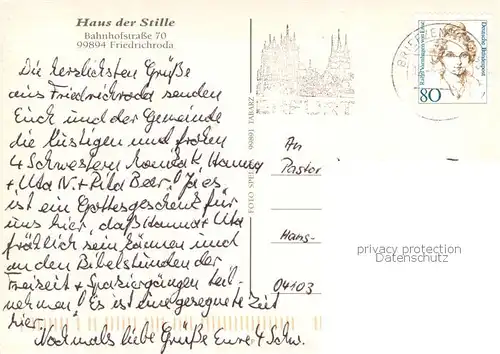 Haus der Stille
Bahnhofstraße 70
99894 Friedrichroda
Die herzlichsten Grüße
aus Friedrichroda senden
Euch und der Gemeinde
die lustigen und frohen
4 Schwestern Monika K, Hanna
+ Uta N. + Rita Beer. Ja es
ist ein Gottesgeschenk für
uns hier, daß Hanna + Uta
fröhlich sein können und
an den Bibelstunden der
Freizeit + Spaziergängen teil-
nehmen! Es ist eine gesegnete Zeit
hier.
Nochmals liebe Grüße Eure 4 Schw.
FOTO 99891 TABARZ
BRIEFZEN
Deutsche Bundespost
Rahel Varnhagen von Ense
80
An
Pastor
Hans-
04103
privacy protection
Datenschutz